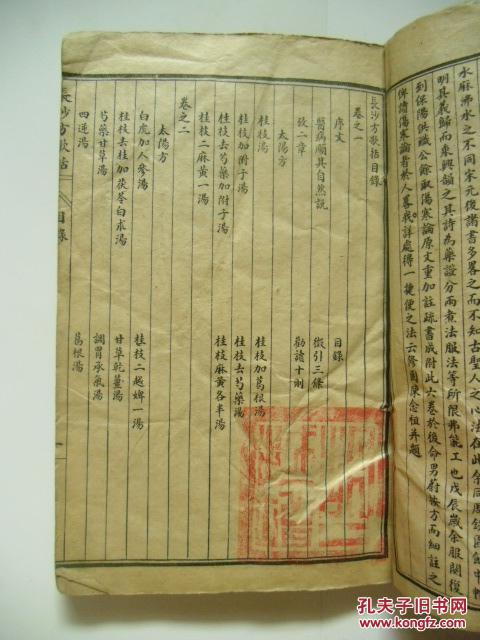 水麻沸水之不同宋元後諸書多畧之而不知古聖人之心法在此余同周
明其義歸而東興韻之其詩為藥證分兩煮法服法等所限弗能工也戊辰歲余服闋復
到保陽供職公餘取傷寒論原文重加註疏書成附此六卷於後命男蔚按方而細註之
俾讀傷寒論者於人畧我詳處得一捷便之法云修園陳念祖并題
長沙方歌括目錄
卷之一
序文 目錄
醫病順其自然說 徵引三條
攷二章 勸讀十則
太陽方
桂枝湯 桂枝加葛根湯
桂枝加附子湯 桂枝去芍藥湯
桂枝去芍藥加附子湯 桂枝麻黃各半湯
桂枝二麻黃一湯
卷之二
太陽方
白虎加人參湯 桂枝二越婢一湯
桂枝去桂加茯苓白朮湯 甘草乾薑湯
芍藥甘草湯 調胃承氣湯
四逆湯 葛根湯
長沙方歌括 目錄 一
孔夫子旧书网
www.kongfz.com